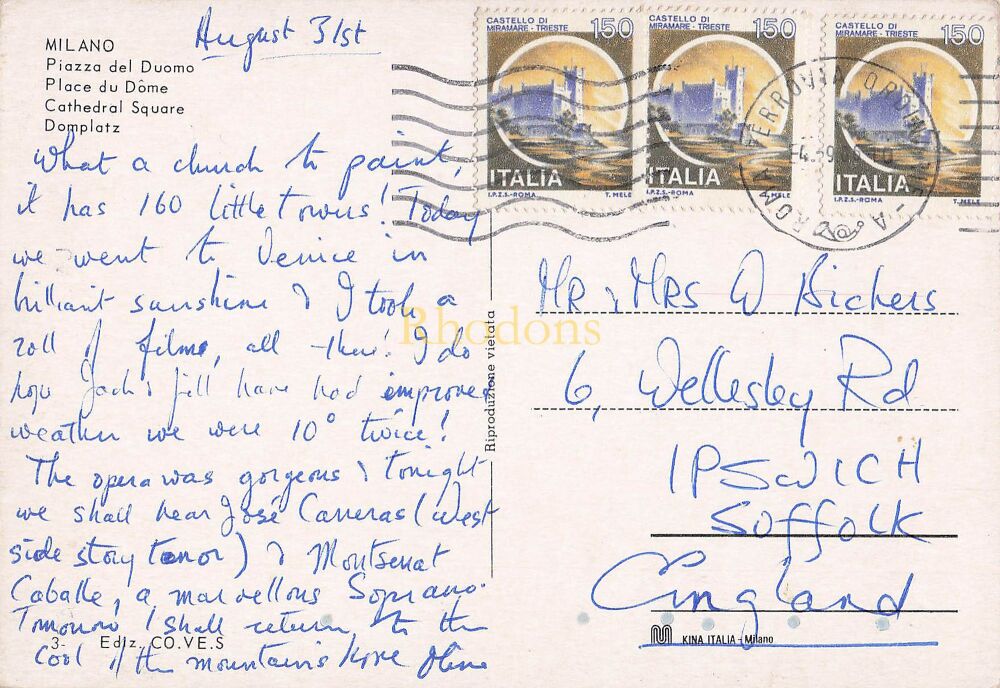 August 31st
MILANO
Piazza del Duomo
Place du Dôme
Cathedral Square
Domplatz
What a church to paint,
it has 160 little towers! Today
we went to Venice in
brilliant sunshine & I took a
roll of films, all there! I do
hope Jack & Jill have had improved
weather we were 10° twice!
The opera was gorgeous & tonight
we shall hear José Carreras (West
side story tenor) & Montserrat
Caballe, a marvellous Soprano.
Tomorrow I shall return to the
cool of the mountains love Olive
3- Ediz. CO.VE.S
Riproduzione vietata
CASTELLO DI
MIRAMARE - TRIESTE
150
ITALIA
I.P.Z.S.-ROMA T. MELE
CASTELLO DI
MIRAMARE - TRIESTE
150
ITALIA
I.P.Z.S.-ROMA T. MELE
CASTELLO DI
MIRAMARE - TRIESTE
150
ITALIA
I.P.Z.S.-ROMA T. MELE
ROMA FERROVIA ORDIN
Mr & Mrs W
6, Wellesley Rd
IPSWICH
SUFFOLK
England
KINA ITALIA - Milano
Rhodons